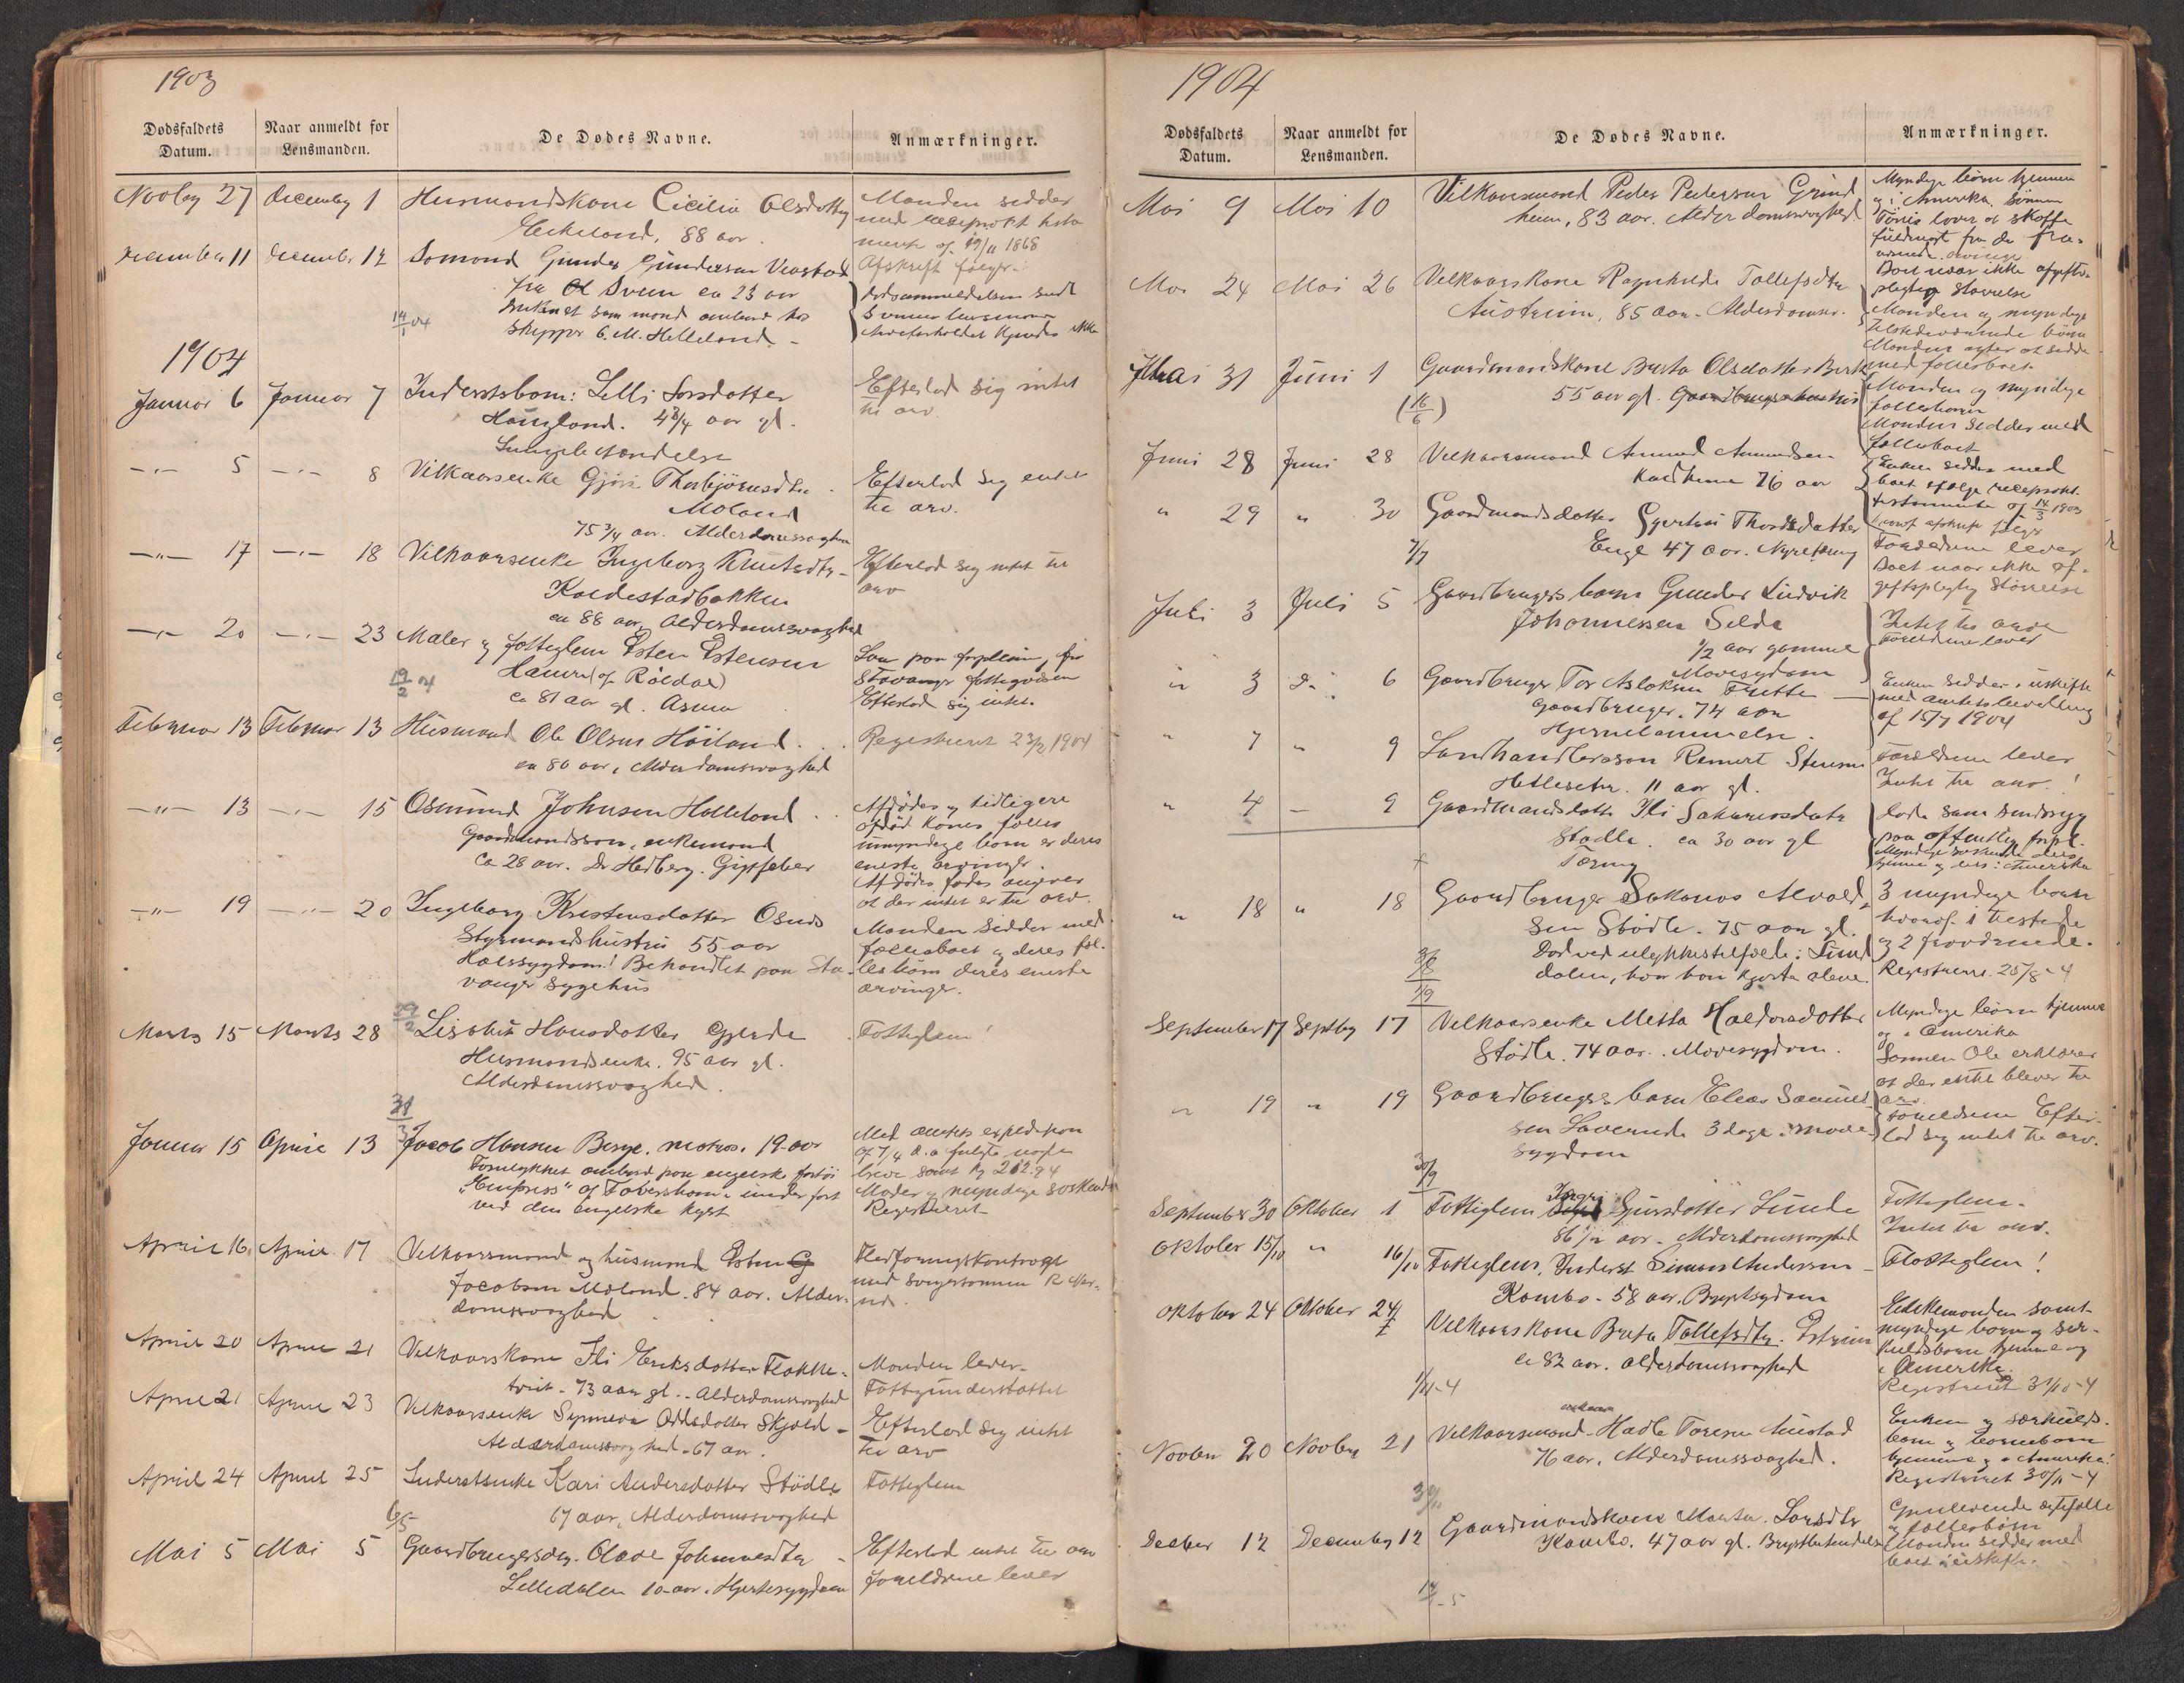 1903
Dødsfaldets Datum.
Naar anmeldt for Lensmanden.
De Dødes Navne.
Anmærkninger.
Novbr 27 december 1 Husmandskone Cicilia Olsdatter
Ekeland, 88 aar.
Manden sidder
med reciprokt testa
mente af 19/11 1868
Afskrift følger
december 11 december 12 Somand Gunder Gundersen
fra Ol Sveen ca 23 aar
Druknet som mand ombord hos
skipper C. M. Helleland
14/1 04
dødsanmeldelsen sendt
Arveforholdet kjendes ikke
1904
Januar 6 Januar 7 Inderstsbarn: Lelli Larsdatter
Haugland. 4 3/4 aar gl.
Lungebetændelse
Efterlod sig intet
til arv.
-"- 5 -"- 8 Vilkaarsenke Gjøri Thorbjørnsdtr
Moland
75 3/4 aar. Alderdomssvaghed
Efterlod sig intet
til arv.
-"- 17 -"- 18 Vilkaarsenke Ingeborg Knutsdtr
Koldestadbakken
ca 88 aar, Alderdomssvaghed
Efterlod sig intet til
arv
-"- 20 -"- 23 Maler og fattiglem Østen Østensen
Hamre (af Røldal)
ca 81 aar gl. Asma
19/2 04
Laa paa forpleining fra
Stavanger fattigvæsen
Efterlod sig intet.
Februar 13 Februar 13 Husmand Ole Olsen Høiland
ca 80 aar, Alderdomssvaghed
Registreret 23/2 1904
-"- 13 -"- 15 Osmund Johnsen Helleland
Gaardmandssøn, enkemand
ca 28 aar. Dr Hedberg. Gigtfeber
Afdødes og tidligere
afdød kones fælles
umyndige barn er deres
eneste arvinger.
Afdødes fader angiver
at der intet er til arv.
-"- 19 -"- 20 Ingeborg Kristensdatter Osnes
Styrmandshustru 55 aar
Halssygdom! Behandlet paa Sta-
vanger sygehus
Manden sidder med
fællesboet og deres fæl-
lesbørn deres eneste
arvinger.
Marts 15 Marts 28 Lisbet Hansdatter Gjerde
Husmandsenke. 95 aar gl.
Alderdomssvaghed.
Fattiglem!
Januar 15 April 13 Jacob Hansen Berge. matros. 19 aar
Forulykket ombord paa engelsk fartøi
"Empress" af Faversham under fart
ved den engelske kyst
Med amtets expedition
af 7/4 d.a. fulgte nogle
breve samt kr 212.94
Moder og myndige søskende
Registreret
April 16 April 17 Vilkaarsmand og husmand Østen
Jacobsen Moland. 84 aar. Alder-
domssvaghed
Flødføringskontrakt
med svigersønnen
April 20 April 21 Vilkaarskone Ili Eriksdatter Flokke-
tveit. 73 aar gl. Alderdomssvaghed
Manden lever.
Fattigunderstøttet
April 21 April 23 Vilkaarsenke Synneva Oddsdatter Skjold
Alderdomssvaghed. 67 aar.
Efterlod sig intet
til arv
April 24 April 25 Inderstenke Kari Andersdatter Stødle
67 aar, Alderdomssvaghed
Fattiglem
6/5
Mai 5 Mai 5 Gaardbrugersdtr. Olave Johannesdtr
Lilledalen 10 aar. Hjertesygdom
Efterlod intet til arv
Forældrene lever
1904
Dødsfaldets Datum.
Naar anmeldt for Lensmanden.
De Dødes Navne.
Anmærkninger.
Mai 9 Mai 10 Vilkaarsmand Peder Pedersen Grind
heim, 83 aar. Alderdomssvaghed
Myndige børn hjemme
og i Amerika. Sønnen
Tørris lover at skaffe
fuldmagt fra de fra-
værende arvinger
Boet var ikke afgifts-
pligtig størrelse
Mai 24 Mai 26 Vilkaarskone Ragnhilda Tollefsdtr
Austrim, 85 aar. Alderdomssv.
Manden og myndige
tilstedeværende børn
Manden agter at sidde
med fællesboet
Mai 31 Juni 1 Gaardmandskone Berta Olsdatter
55 aar gl.
(16/6)
Manden og myndige
fællesbørn
Manden sidder med
fællesboet
Juni 28 Juni 28 Vilkaarsmand Amund Amundsen
76 aar
Enken sidder med
boet ifølge reciprokt
testamente af 14/3 1903
hvoraf afskrift følger
" 29 " 30 Gaardmandsdatter Gjertrui Thordsdatter
Enge 47 aar. Nyretæring
7/7
Forældrene lever
Boet var ikke af-
giftspligtig størrelse
Juli 3 Juli 5 Gaardbrugers barn Gunder Ludvik
Johannessen Selde
1/2 aar gammel
Mavesygdom
Intet til arv
Forældrene lever
" 3 " 6 Gaardbruger Tor Aslaksen Tvette
Gaardbruger. 74 aar
Hjernelammelse.
Enken sidder i uskifte
med amtets bevilling
af 15/7 1904
" 7 " 9 Landhandlersøn Remert Stensen
Hetleseter. 11 aar gl.
Forældrene lever
Intet til arv!
" 4 - 9 Gaardmandsdatter Ili Sakariasdatter
Stødle. ca 30 aar gl
Tæring
Døde som sindssyg
paa offentlig forpl.
" 18 " 18 Gaardbruger Sakarias Alvald-
sen Stødle. 75 aar gl.
Død ved ulykkestilfælde i Lund
dalen, hvor han kjørte alene.
3 myndige børn
hvoraf 1 tilstede
og 2 fraværende.
Registreret 25/8-4
September 17 Septbr 17 Vilkaarsenke Metta Haldorsdatter
Stødle. 74 aar. Mavesygdom.
Myndige børn hjemme
og i Amerika
Sønnen Ole erklærer
at der intet bliver til
arv.
" 19 " 19 Gaardbrugers barn Elias Samuel-
sen Løvereide 3 dage. Mave-
sygdom
Forældrene Efter-
lod sig intet til arv.
30/9
September 30 Oktober 1 Fattiglem Ingri Guresdatter Lunde
86 1/2 aar. Alderdomssvaghed
Fattiglem.
Intet til arv.
Oktober 15/10 " 16/10 Fattiglem, Inderst Simon Andersen
Kambo. 58 aar. Brystsygdom
Fattiglem!
Oktober 24 Oktober 24 Vilkaarskone Berta Tollefsdtr. Østrim
ca 82 aar. Alderdomssvaghed
1/11-4
Enkemanden samt
myndige børn og sær-
kuldsbørn hjemme og
i Amerika.
Registreret 31/10-4
Novbr 20 Novbr 21 Vilkaarsmand Hadle Toresen Austad
76 aar, Alderdomssvaghed.
Enken og særkulds-
børn og børnebørn
hjemme og i Amerika!
Registreret 30/11-4
Decbr 12 December 12 Gaardmandskone Marta Larsdtr
Kambo. 47 aar gl. Brystbetændelse
Gjenlevende ægtefælle
og fællesbørn
Manden sidder med
boet i uskifte.